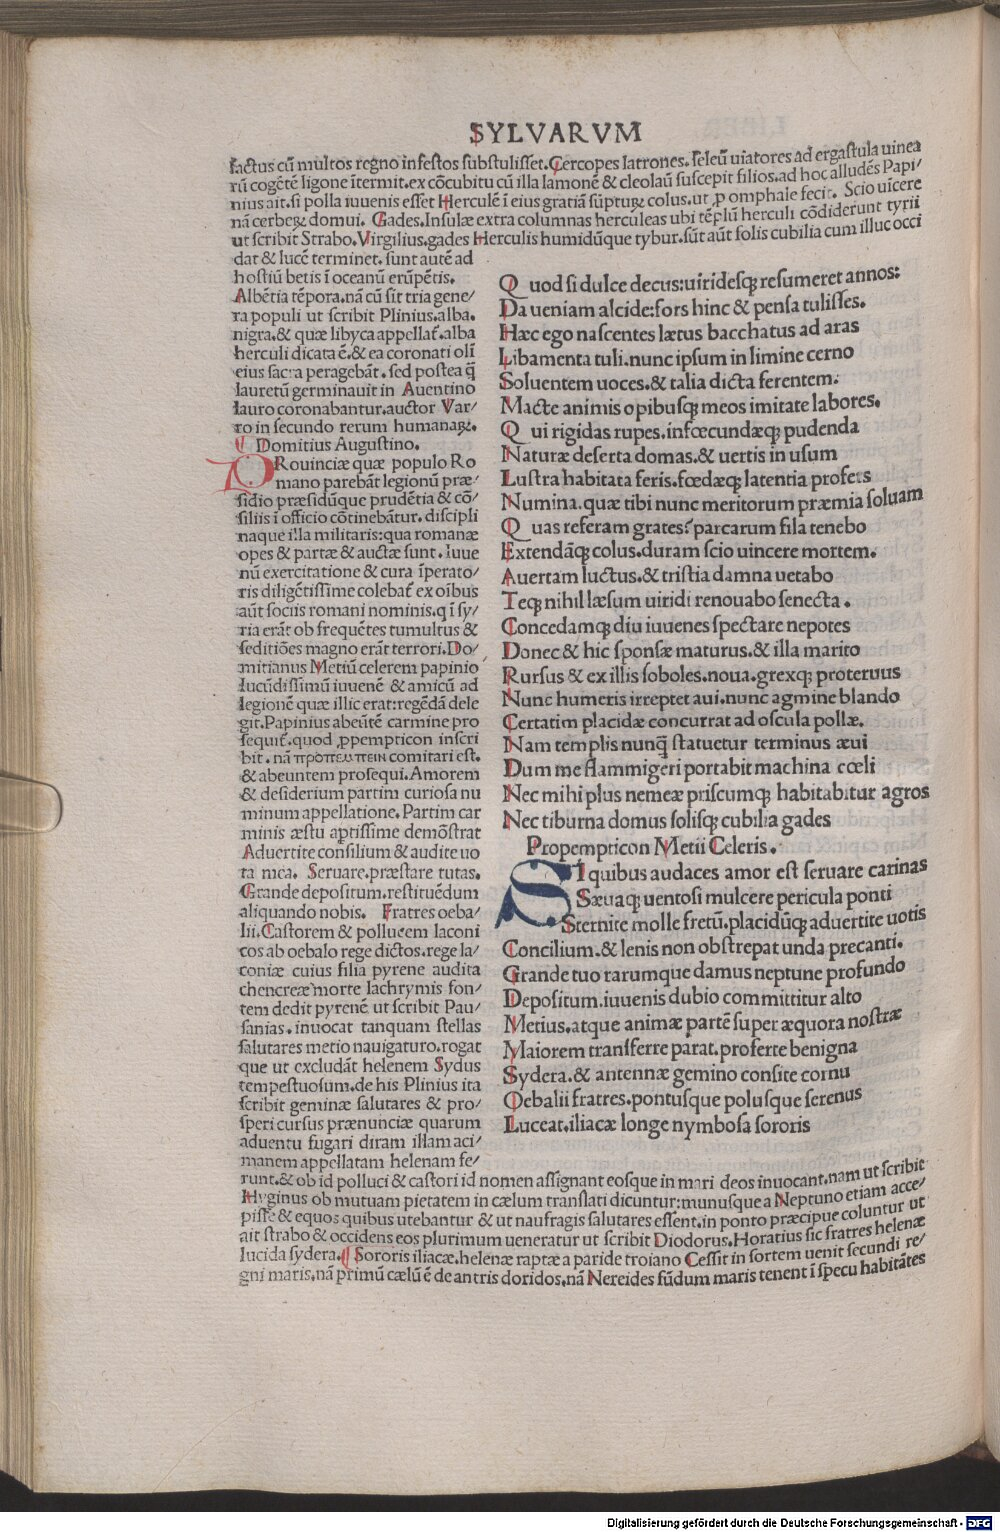 SYLVARVM
factus cū multos regno infestos substulisset. Cercopes latrones. seleū uiatores ad ergastula uinea
rū cogētē ligone ītermit. ex cōcubitu cū illa lamonē & cleolaū suscepit filios. ad hoc alludēs Papi/
nius ait. si polla iuuenis esset Herculē ī eius gratiā sūpturꝫ colus. ut ꝓ omphale fecit. Scio uicere
nā cerberꝫ domui. Gades. Insulæ extra columnas herculeas ubi tēplū herculi cōdiderunt tyrii
ut scribit Strabo. Virgilius. gades Herculis humidūque tybur. sūt aūt solis cubilia cum illuc occi
dat & lucē terminet. sunt autē ad
hostiū betis ī oceanū erūpētis.
Albētia tēpora. nā cū sit tria gene/
ra populi ut scribit Plinius. alba.
nigra. & quæ libyca appellat̄. alba
herculi dicata ē. & ea coronati olī
eius sacra peragebāt. sed postea q̄
lauretū germinauit in Auentino
lauro coronabantur. auctor Var/
ro in secundo rerum humanaꝝ.
¶ Domitius Augustino.
PRouinciæ quæ populo Ro
mano parebāt legionū præ/
sidio præsidūque prudētia & cō/
siliis ī officio cōtinebātur. discipli
naque illa militaris: qua romanæ
opes & partæ & auctæ sunt. Iuue
nū exercitatione & cura īperato/
ris diligētissime colebat̄ ex oībus
aūt sociis romani nominis. q ī sy/
ria erāt ob frequētes tumultus &
seditiōes magno erāt terrori. Do/
mitianus Metiū celerem papinio
lucūdissimū iuuenē & amicū ad
legionē quæ illic erat: regēdā dele
git. Papinius abeūtē carmine pro
sequit̄. quod ꝓpempticon inscri
bit. nā προπευπειν comitari est.
& abeuntem prosequi. Amorem
& desiderium partim curiosa nu
minum appellatione. Partim car
minis æstu aptissime demōstrat
Aduertite consilium & audite uo
ta mea. Seruare. præstare tutas.
Grande depositum. restituēdum
aliquando nobis. Fratres oeba/
lii. Castorem & pollucem laconi
cos ab oebalo rege dictos. rege la/
coniæ cuius filia pyrene audita
chencreæ morte lachrymis fon/
tem dedit pyrenē ut scribit Pau/
sanias. inuocat tanquam stellas
salutares metio nauigaturo. rogat
que ut excludāt helenem Sydus
tempestuosum. de his Plinius ita
scribit geminæ salutares & pro/
speri cursus prænunciæ quarum
aduentu fugari diram illam aci/
manem appellatam helenam fe/
runt. & ob id polluci & castori id nomen assignant eosque in mari deos inuocant. nam ut scribit
Hyginus ob mutuam pietatem in cælum translati dicuntur: munusque a Neptuno etiam acce/
pisse & equos quibus utebantur & ut naufragis salutares essent. in ponto præcipue coluntur ut
ait strabo & occidens eos plurimum ueneratur ut scribit Diodorus. Horatius sic fratres helenæ
lucida sydera. ¶ Sororis iliacæ. helenæ raptæ a paride troiano Cessit in sortem uenit secundi re/
gni maris. nā primū cælū ē de antris doridos. nā Nereides fūdum maris tenent ī specu habitātes
Quod si dulce decus: uiridesqꝫ resumeret annos:
Da ueniam alcide: fors hinc & pensa tulisses.
Hæc ego nascentes lætus bacchatus ad aras
Libamenta tuli. nunc ipsum in limine cerno
Soluentem uoces. & talia dicta ferentem.
Macte animis opibusqꝫ meos imitate labores.
Qui rigidas rupes. infœcundæqꝫ pudenda
Naturæ deserta domas. & uertis in usum
Lustra habitata feris. fœdæqꝫ latentia profers
Numina. quæ tibi nunc meritorum præmia soluam
Quas referam grates? parcarum fila tenebo
Extendāqꝫ colus. duram scio uincere mortem.
Auertam luctus. & tristia damna uetabo
Teqꝫ nihil læsum uiridi renouabo senecta.
Concedamqꝫ diu iuuenes spectare nepotes
Donec & hic sponsæ maturus. & illa marito
Rursus & ex illis soboles. noua. grexqꝫ proteruus
Nunc humeris irreptet aui. nunc agmine blando
Certatim placidæ concurrat ad oscula pollæ.
Nam templis nunq̄ statuetur terminus æui
Dum me flammigeri portabit machina cœli
Nec mihi plus nemeæ priscumqꝫ habitabitur agros
Nec tiburna domus solisqꝫ cubilia gades
Propempticon Metii Celeris.
SI quibus audaces amor est seruare carinas
Sæuaqꝫ uentosi mulcere pericula ponti
Sternite molle fretū. placidūqꝫ aduertite uotis
Concilium. & lenis non obstrepat unda precanti.
Grande tuo rarumque damus neptune profundo
Depositum. iuuenis dubio committitur alto
Metius. atque animæ partē super æquora nostræ
Maiorem transferre parat. proferte benigna
Sydera. & antennæ gemino consite cornu
Oebalii fratres. pontusque polusque serenus
Luceat. iliacæ longe nymbosa sororis
Digitalisierung gefördert durch die Deutsche Forschungsgemeinschaft - DFG